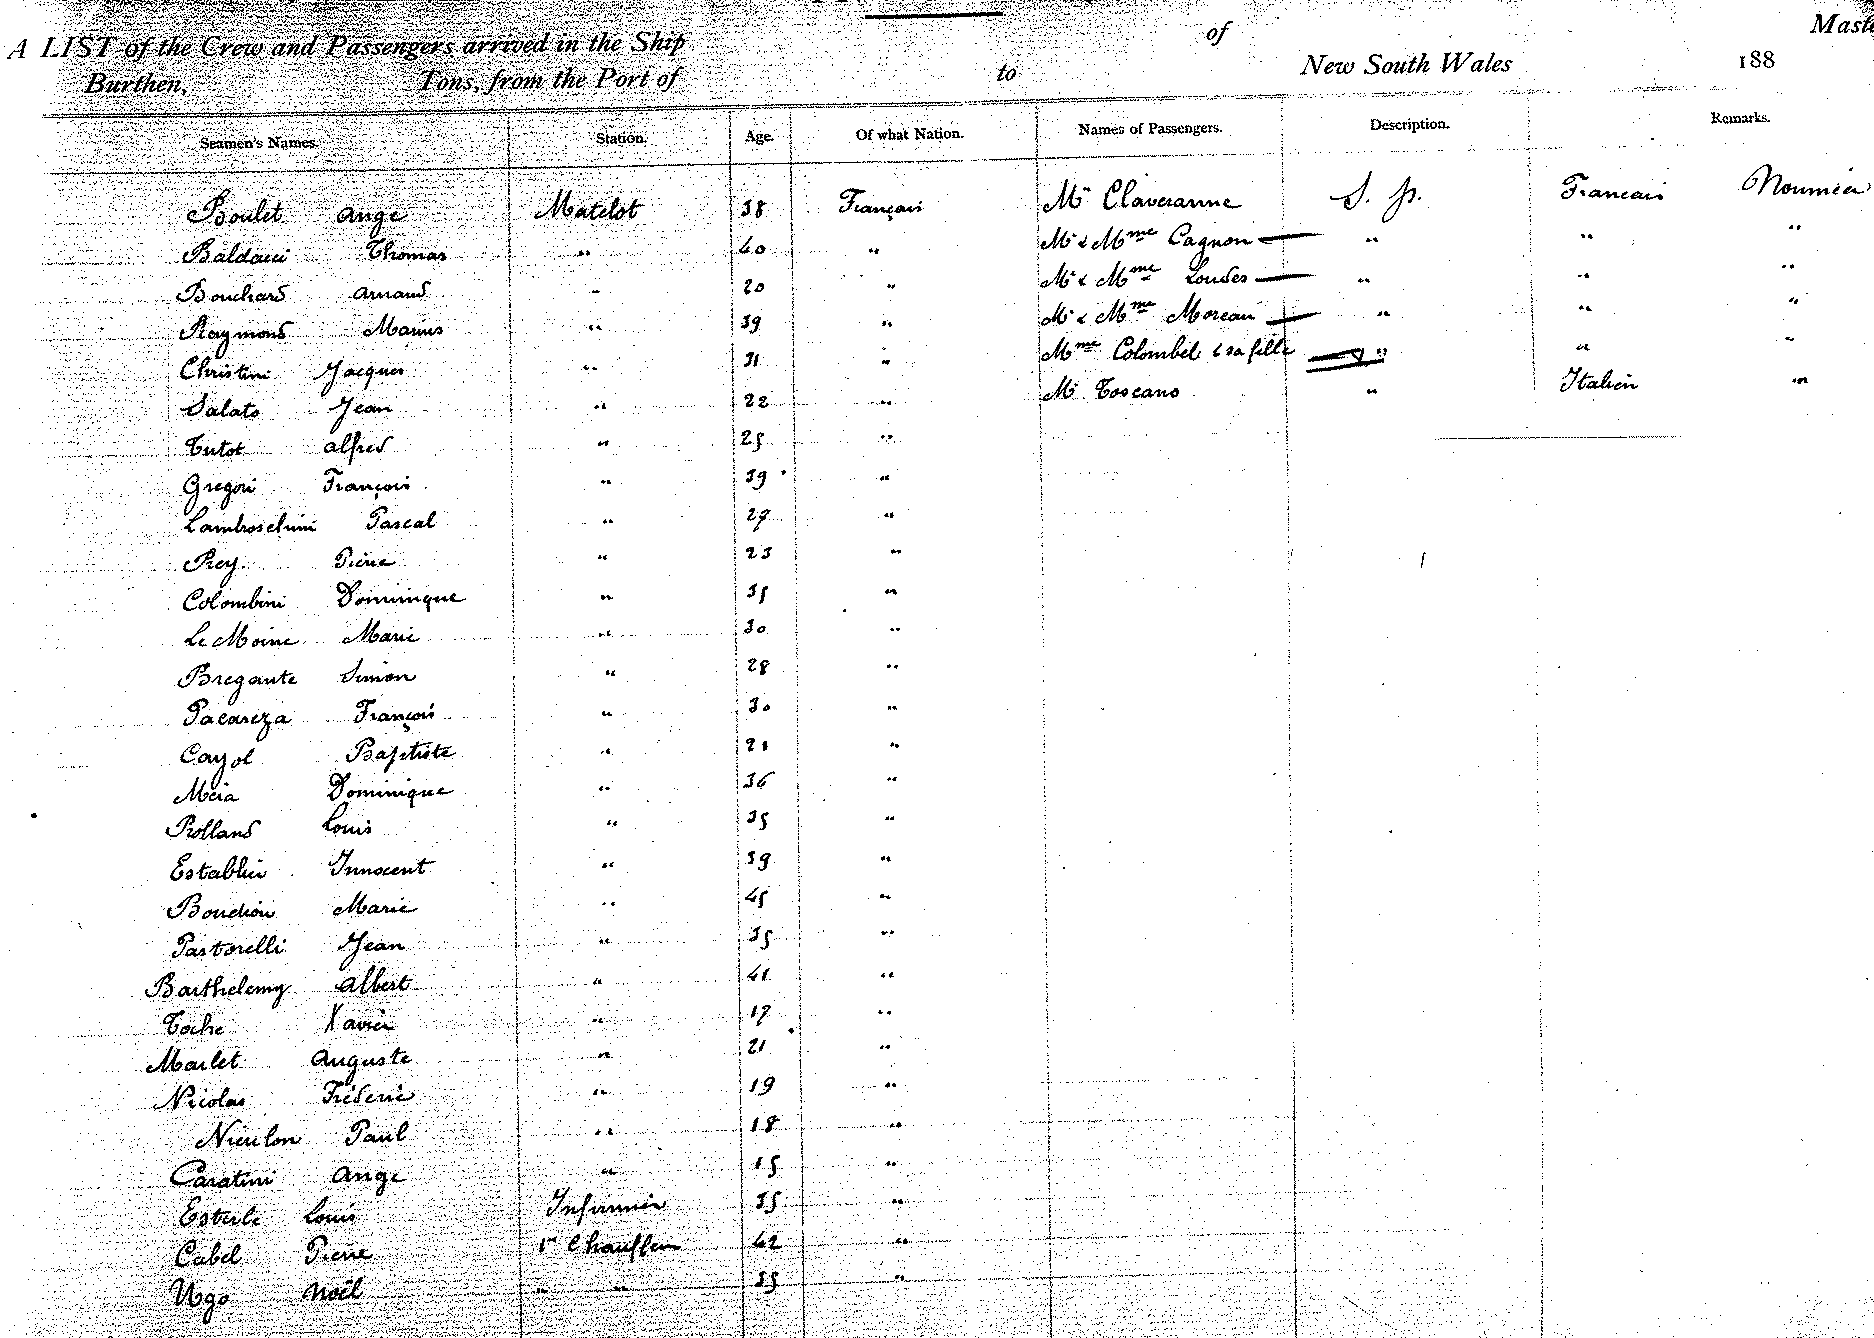 A LIST of the Crew and Passengers arrived in the Ship of Maste
Burthen, Tons, from the Port of to New South Wales 188
Seamen's Names. Station. Age. Of what Nation. Names of Passengers. Description. Remarks.
Boulet Ange Matelot 38 Français Mr Claveranne S. p. Francais Noumea
Baldacci Thomas " 40 " Mr & Mme Cagnon — " " "
Bouchard Arnaud " 20 " Mr & Mme Loudes — " " "
Raymond Marius " 39 " Mr & Mme Moreau — " " "
Christini Jacques " 31 " Mme Colombel & sa fille — " " "
Salato Jean " 22 " Mr Toscano " Italien "
Tutot Alfred " 25 "
Gregori François " 39 "
Lamboschini Pascal " 27 "
Rey Pierre " 23 "
Colombini Dominique " 35 "
Le Moine Marie " 30 "
Bregante Simon " 28 "
Pacareza François " 30 "
Cayol Baptiste " 21 "
Meia Dominique " 36 "
Rolland Louis " 35 "
Establie Innocent " 39 "
Marie " 45 "
Pastorelli Jean " 35 "
Barthelemy Albert " 41 "
Toche Xavier " 17 "
Marlet Auguste " 21 "
Nicolas Fréderic " 19 "
Nieulon Paul " 18 "
Caratini Ange " 15 "
Esterle Louis Infirmier 35 "
Cabel Pierre 1er Chauffeur 42 "
Ugo Noël " " 35 "